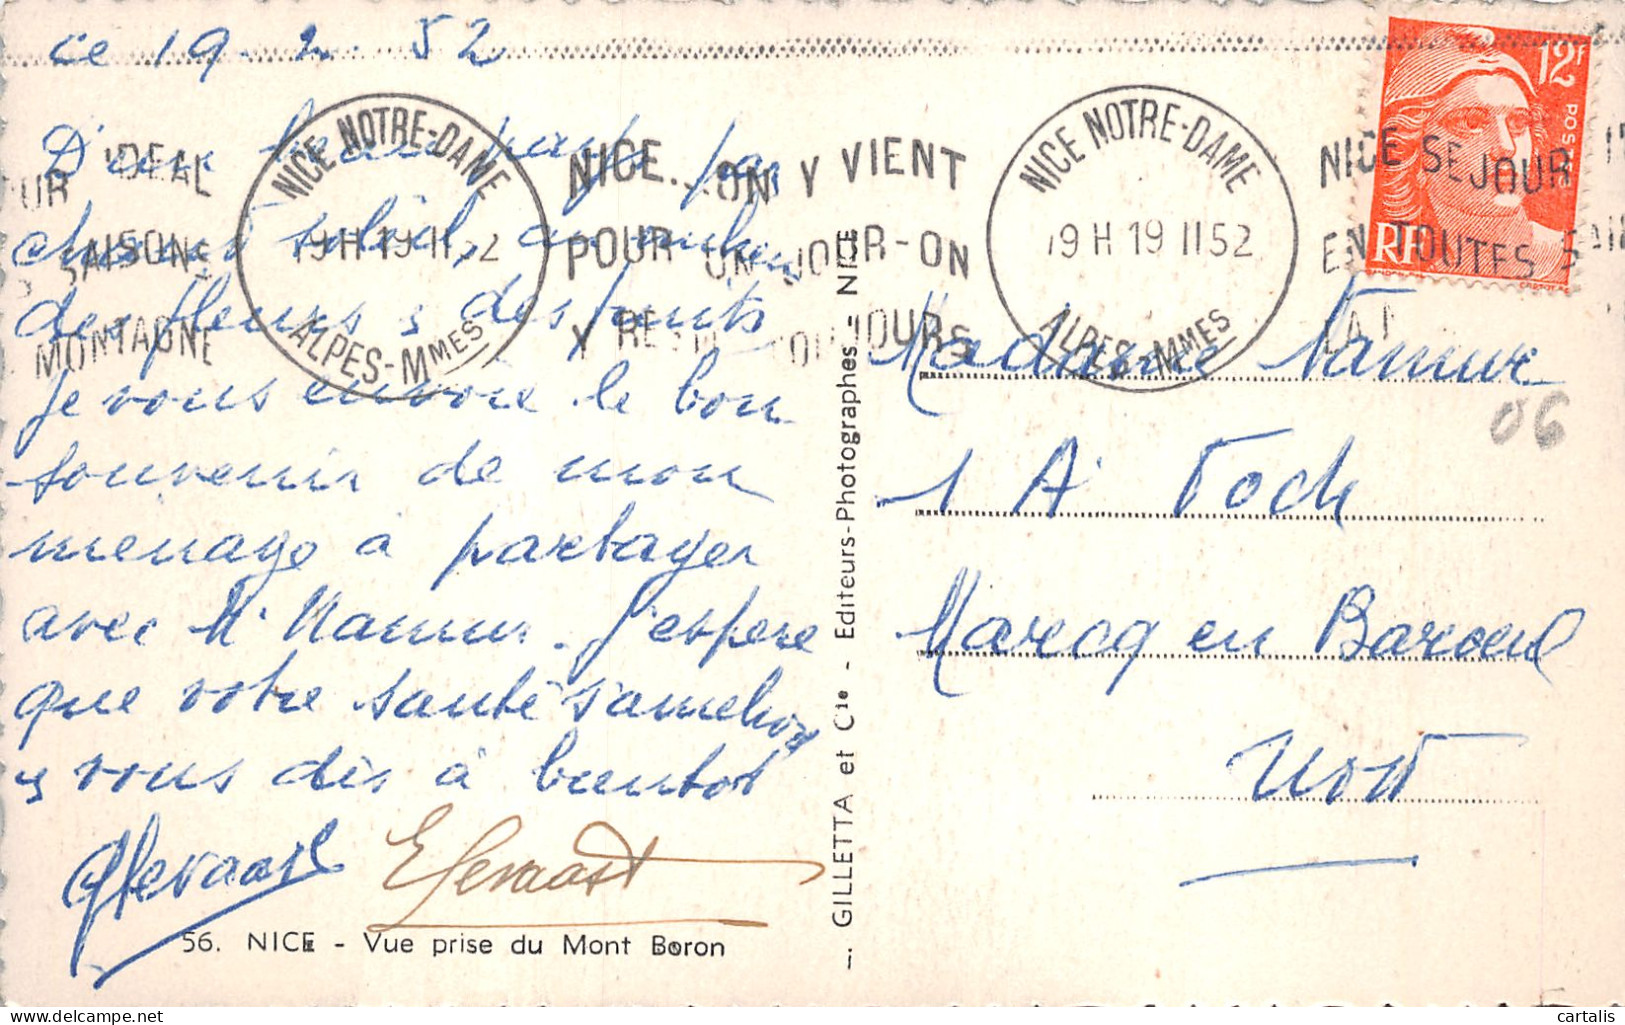 ce 19-2-52
D'un beau pays par
chaud soleil, au milieu
des fleurs, des fruits
je vous envoie le bon
souvenir de mon
ménage à partager
avec Mr Namur. J'espère
que votre santé s'améliore
et vous dis à bientôt
56. NICE - Vue prise du Mont Boron
GILLETTA et Cie - Editeurs-Photographes - NICE
NICE NOTRE-DAME
19H 19 II 52
ALPES-MMES
NICE... ON Y VIENT
POUR UN JOUR - ON
Y RESTE TOUJOURS
NICE NOTRE-DAME
19 H 19 II 52
ALPES-MMES
NICE SEJOUR
EN TOUTES
IDEAL
SAISONS
MONTAGNE
12F
POSTES
RF
Madame Namur
1 A. Foch
Marcq en Baroeul
Nord
06
cartalis